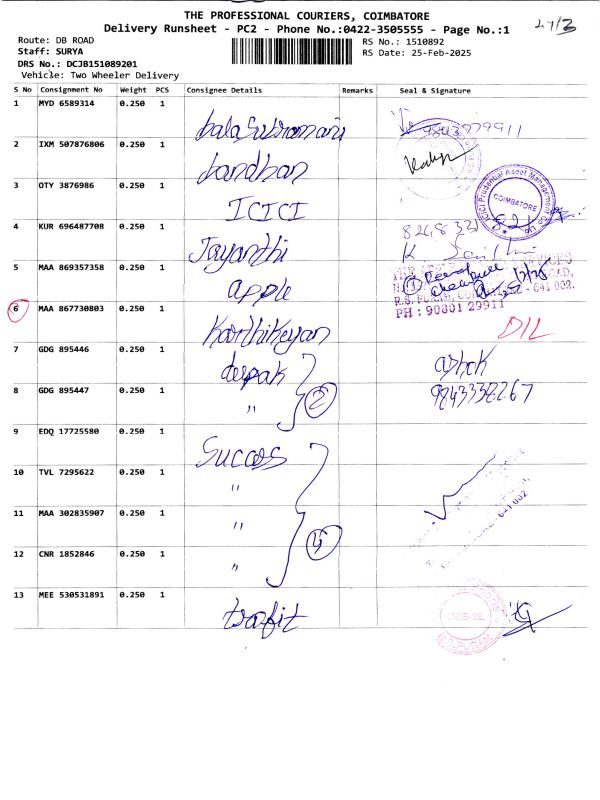 THE PROFESSIONAL COURIERS, COIMBATORE
Delivery Runsheet - PC2 - Phone No.:0422-3505555 - Page No.:1
Route: DB ROAD
Staff: SURYA
DRS No.: DCJB151089201
Vehicle: Two Wheeler Delivery
RS No.: 1510892
RS Date: 25-Feb-2025
S No Consignment No Weight PCS Consignee Details Remarks Seal & Signature
1 MYD 6589314 0.250 1 balasubramani 9843979911
2 IXM 507876806 0.250 1 bandhan
3 OTY 3876986 0.250 1 ICICI COIMBATORE
4 KUR 696487708 0.250 1 Jayanthi
5 MAA 869357358 0.250 1 apple
R.S. PURAM, COIMBATORE - 641 002.
PH : 90801 29911
6 MAA 867730803 0.250 1 Karthikeyan D/L
7 GDG 895446 0.250 1 deepak ashok
8 GDG 895447 0.250 1 " 2 9843338267
9 EDQ 17725580 0.250 1 Sucess
10 TVL 7295622 0.250 1 "
11 MAA 302835907 0.250 1 " 4
12 CNR 1852846 0.250 1 "
13 MEE 530531891 0.250 1 trafit